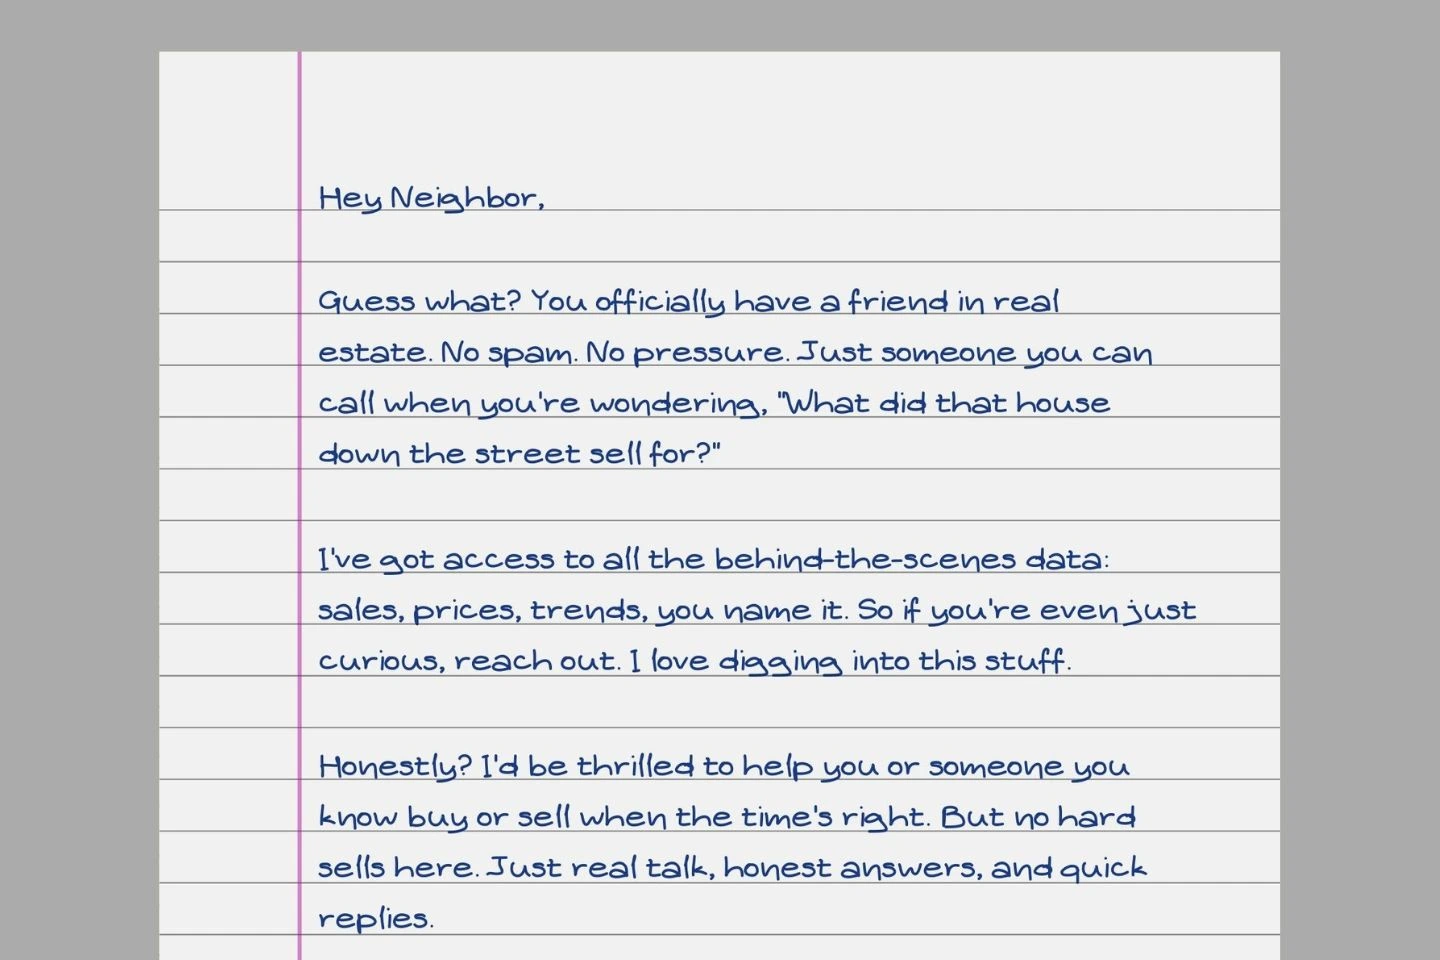 Hey Neighbor,
Guess what? You officially have a friend in real
estate. No spam. No pressure. Just someone you can
call when you're wondering, "What did that house
down the street sell for?"
I've got access to all the behind-the-scenes data:
sales, prices, trends, you name it. So if you're even just
curious, reach out. I love digging into this stuff.
Honestly? I'd be thrilled to help you or someone you
know buy or sell when the time's right. But no hard
sells here. Just real talk, honest answers, and quick
replies.